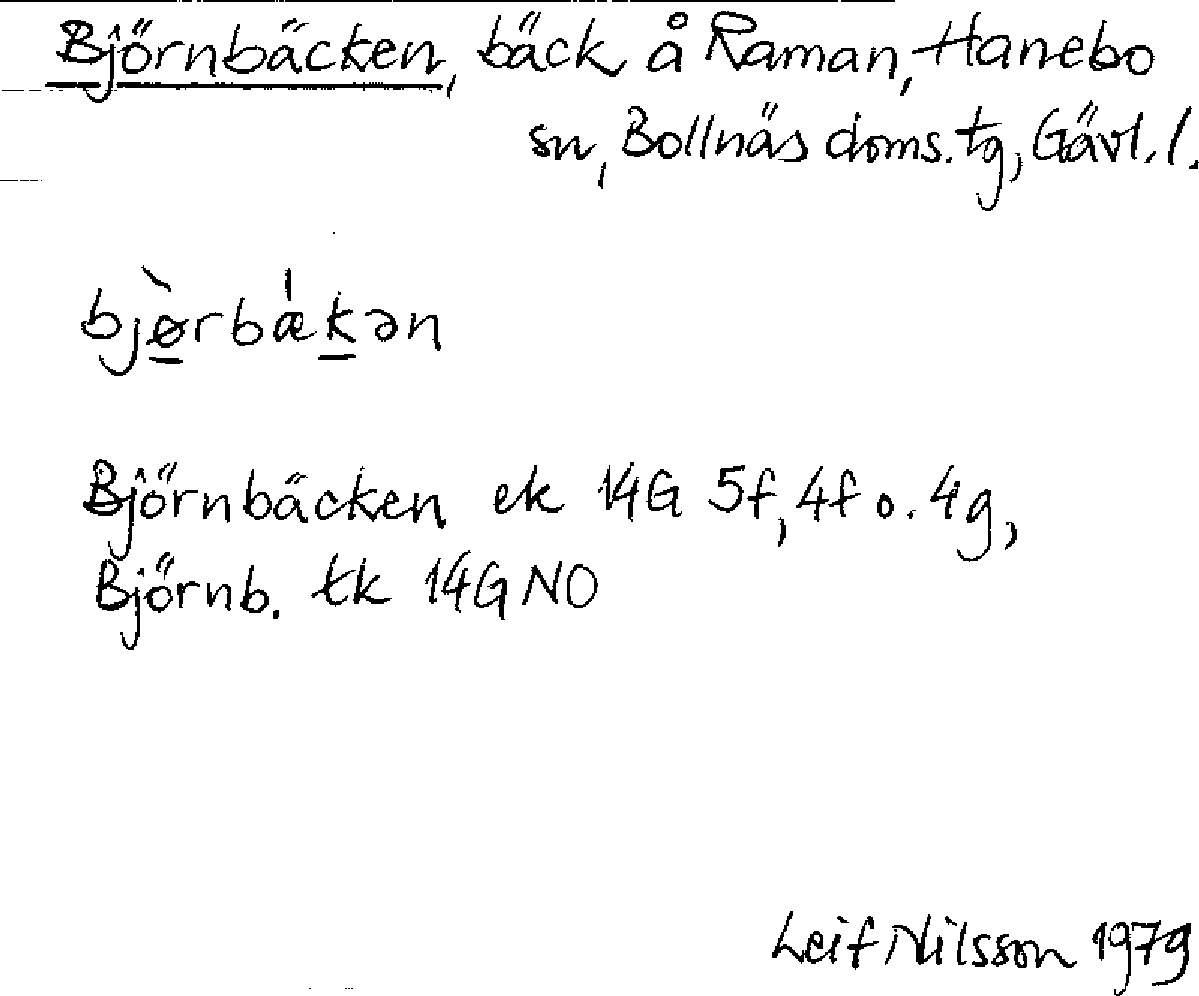 Björnbäcken, bäck å Raman, Hanebo
sn, Bollnäs doms. tg, Gävl. l.
bjø̲̀rbǽk̲ən
Björnbäcken ek 14G 5f, 4f o. 4g,
Björnb. tk 14G NO
Leif Nilsson 1979